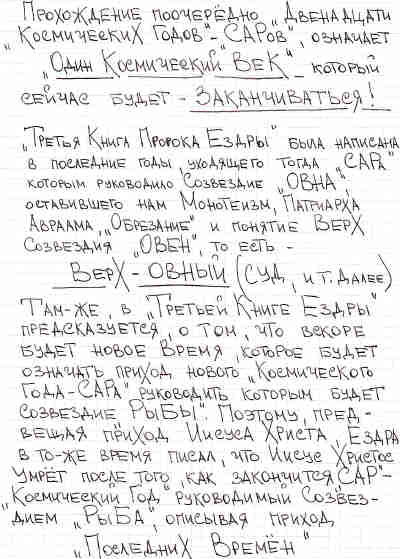 Прохождение поочерёдно „Двенадцати
„Космических Годов"-САРов", означает
„Один Космический Век", который
сейчас будет - Заканчиваться!
„Третья Книга Пророка Ездры" была написана
в последние годы, уходящего тогда „САРа"
которым руководило Созвездие „ОВНА",
оставившего нам Монотеизм, Патриарха
Авраама, „Обрезание" и понятие Верх
Созвездия „ОВЕН", то есть -
Верх-Овный (Суд, и т. далее)
Там-же, в „Третьей Книге Ездры"
предсказуется, о том, что вскоре
будет новое Время, которое будет
означать приход нового „Космического
Года-САРа", руководить которым будет
созвездие „Рыбы". Поэтому, пред-
вещая приход Иисуса Христа, Ездра
в то-же время писал, что Иисус Христос
умрёт после того, как закончится „САР"-
„Космический Год", руководимый Созвез-
дием „Рыба", описывая приход
„Последних Времён"